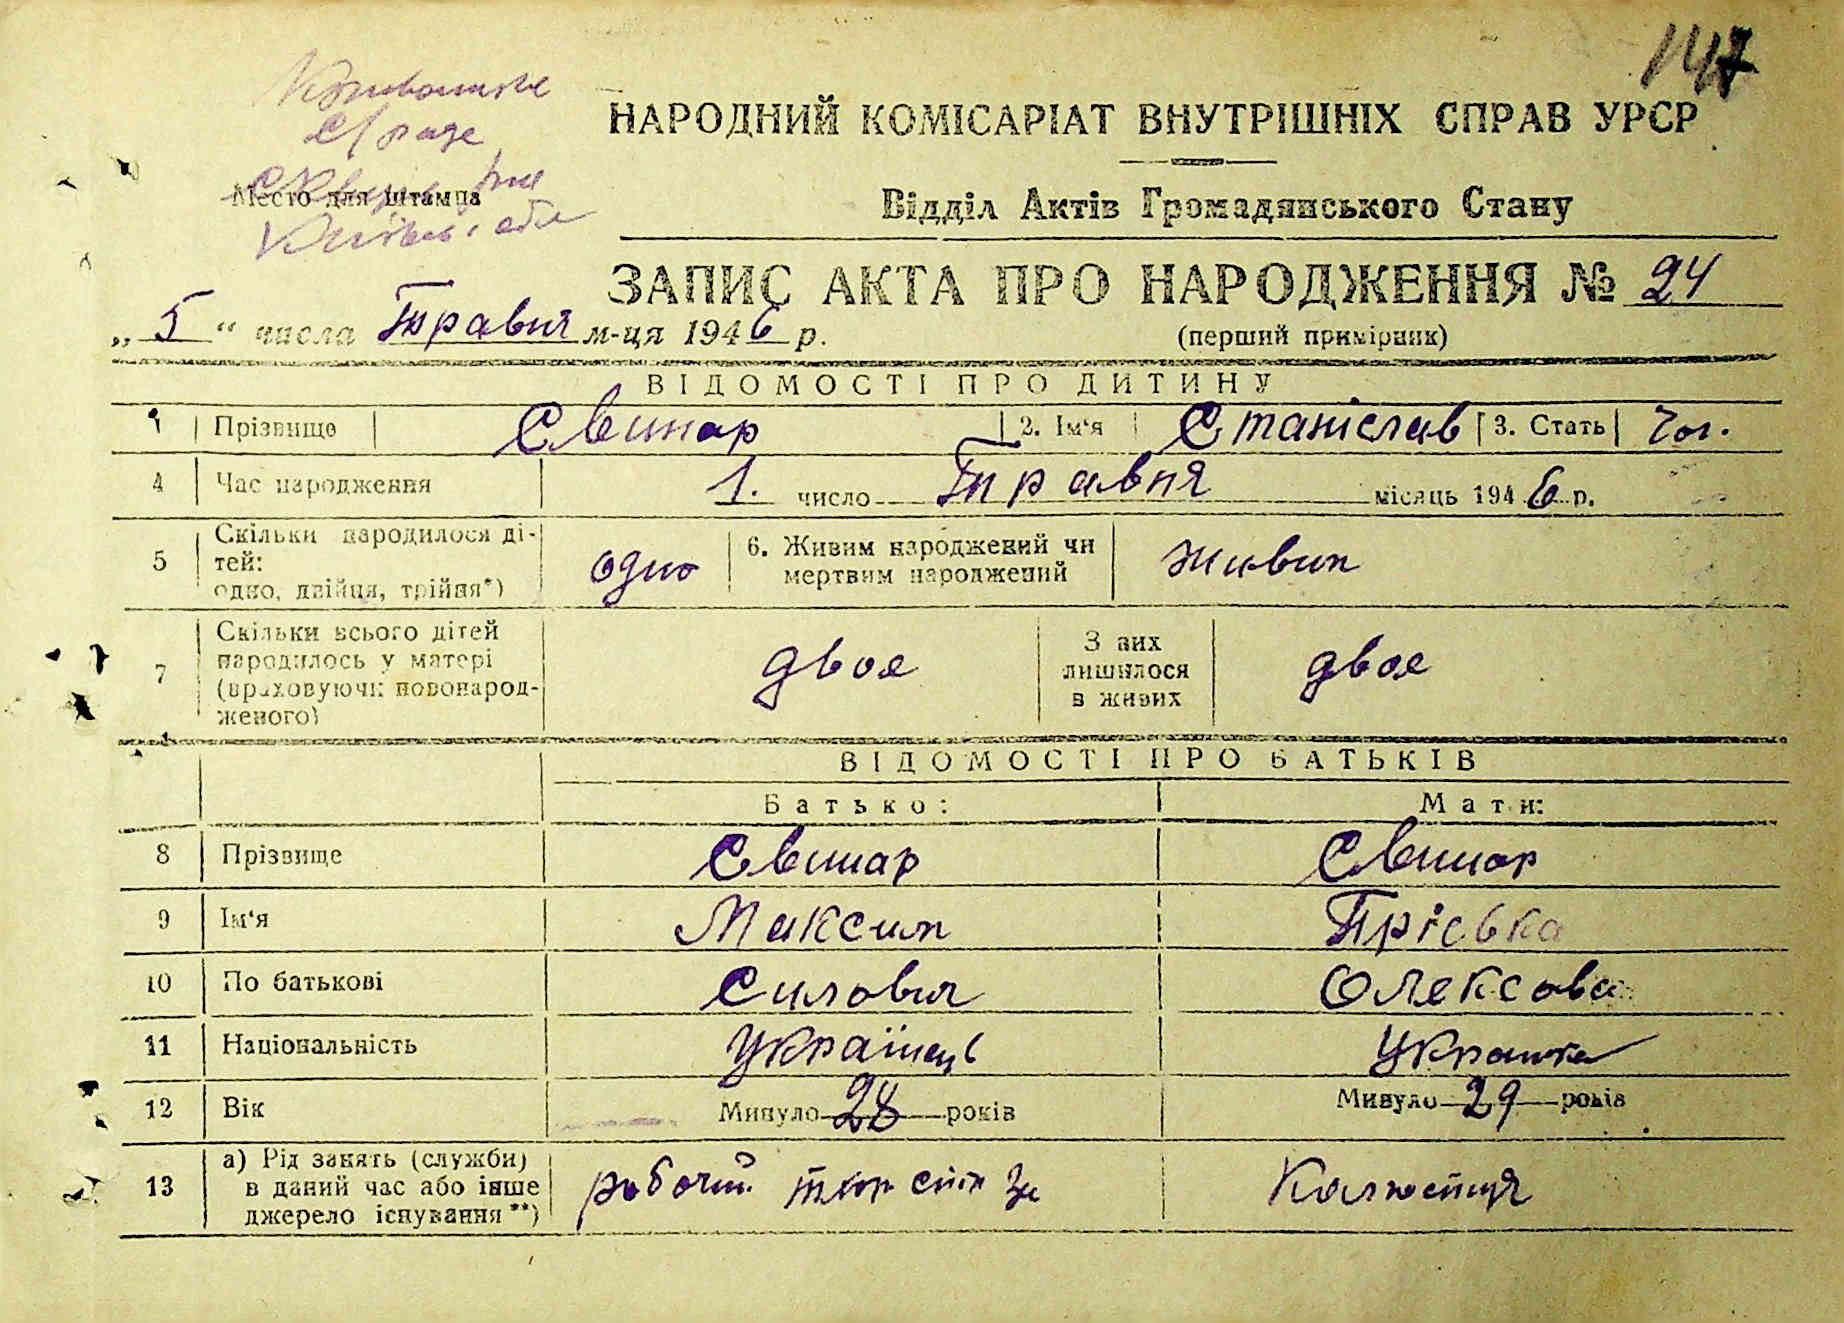 147
Кривошинсь
с/рада
Місто для штампа
Сквир. р-ну
Київсь. обл
НАРОДНИЙ КОМІСАРІАТ ВНУТРІШНІХ СПРАВ УРСР
Відділ Актів Громадянського Стану
ЗАПИС АКТА ПРО НАРОДЖЕННЯ № 24
„ 5 “ числа Травня м-ця 1946 р.
(перший примірник)
ВІДОМОСТІ ПРО ДИТИНУ
1 Прізвище Свинар 2. Ім'я Станіслав 3. Стать Чол.
4 Час народження 1. число Травня місяць 1946 р.
5 Скільки народилося ді-
тей:
одно, двійця, трійня*) одно 6. Живим народжений чи
мертвим народжений живим
7 Скільки всього дітей
народилось у матері
(враховуючи новонарод-
женого) двоє З них
лишилося
в живих двоє
ВІДОМОСТІ ПРО БАТЬКІВ
Батько: Мати:
8 Прізвище Свинар Свинар
9 Ім'я Максим Пріська
10 По батькові Силович Олексова
11 Національність Українець Українка
12 Вік Минуло 28 років Минуло 29 років
13 а) Рід занять (служби)
в даний час або інше
джерело існування**) робочий Колгоспиця